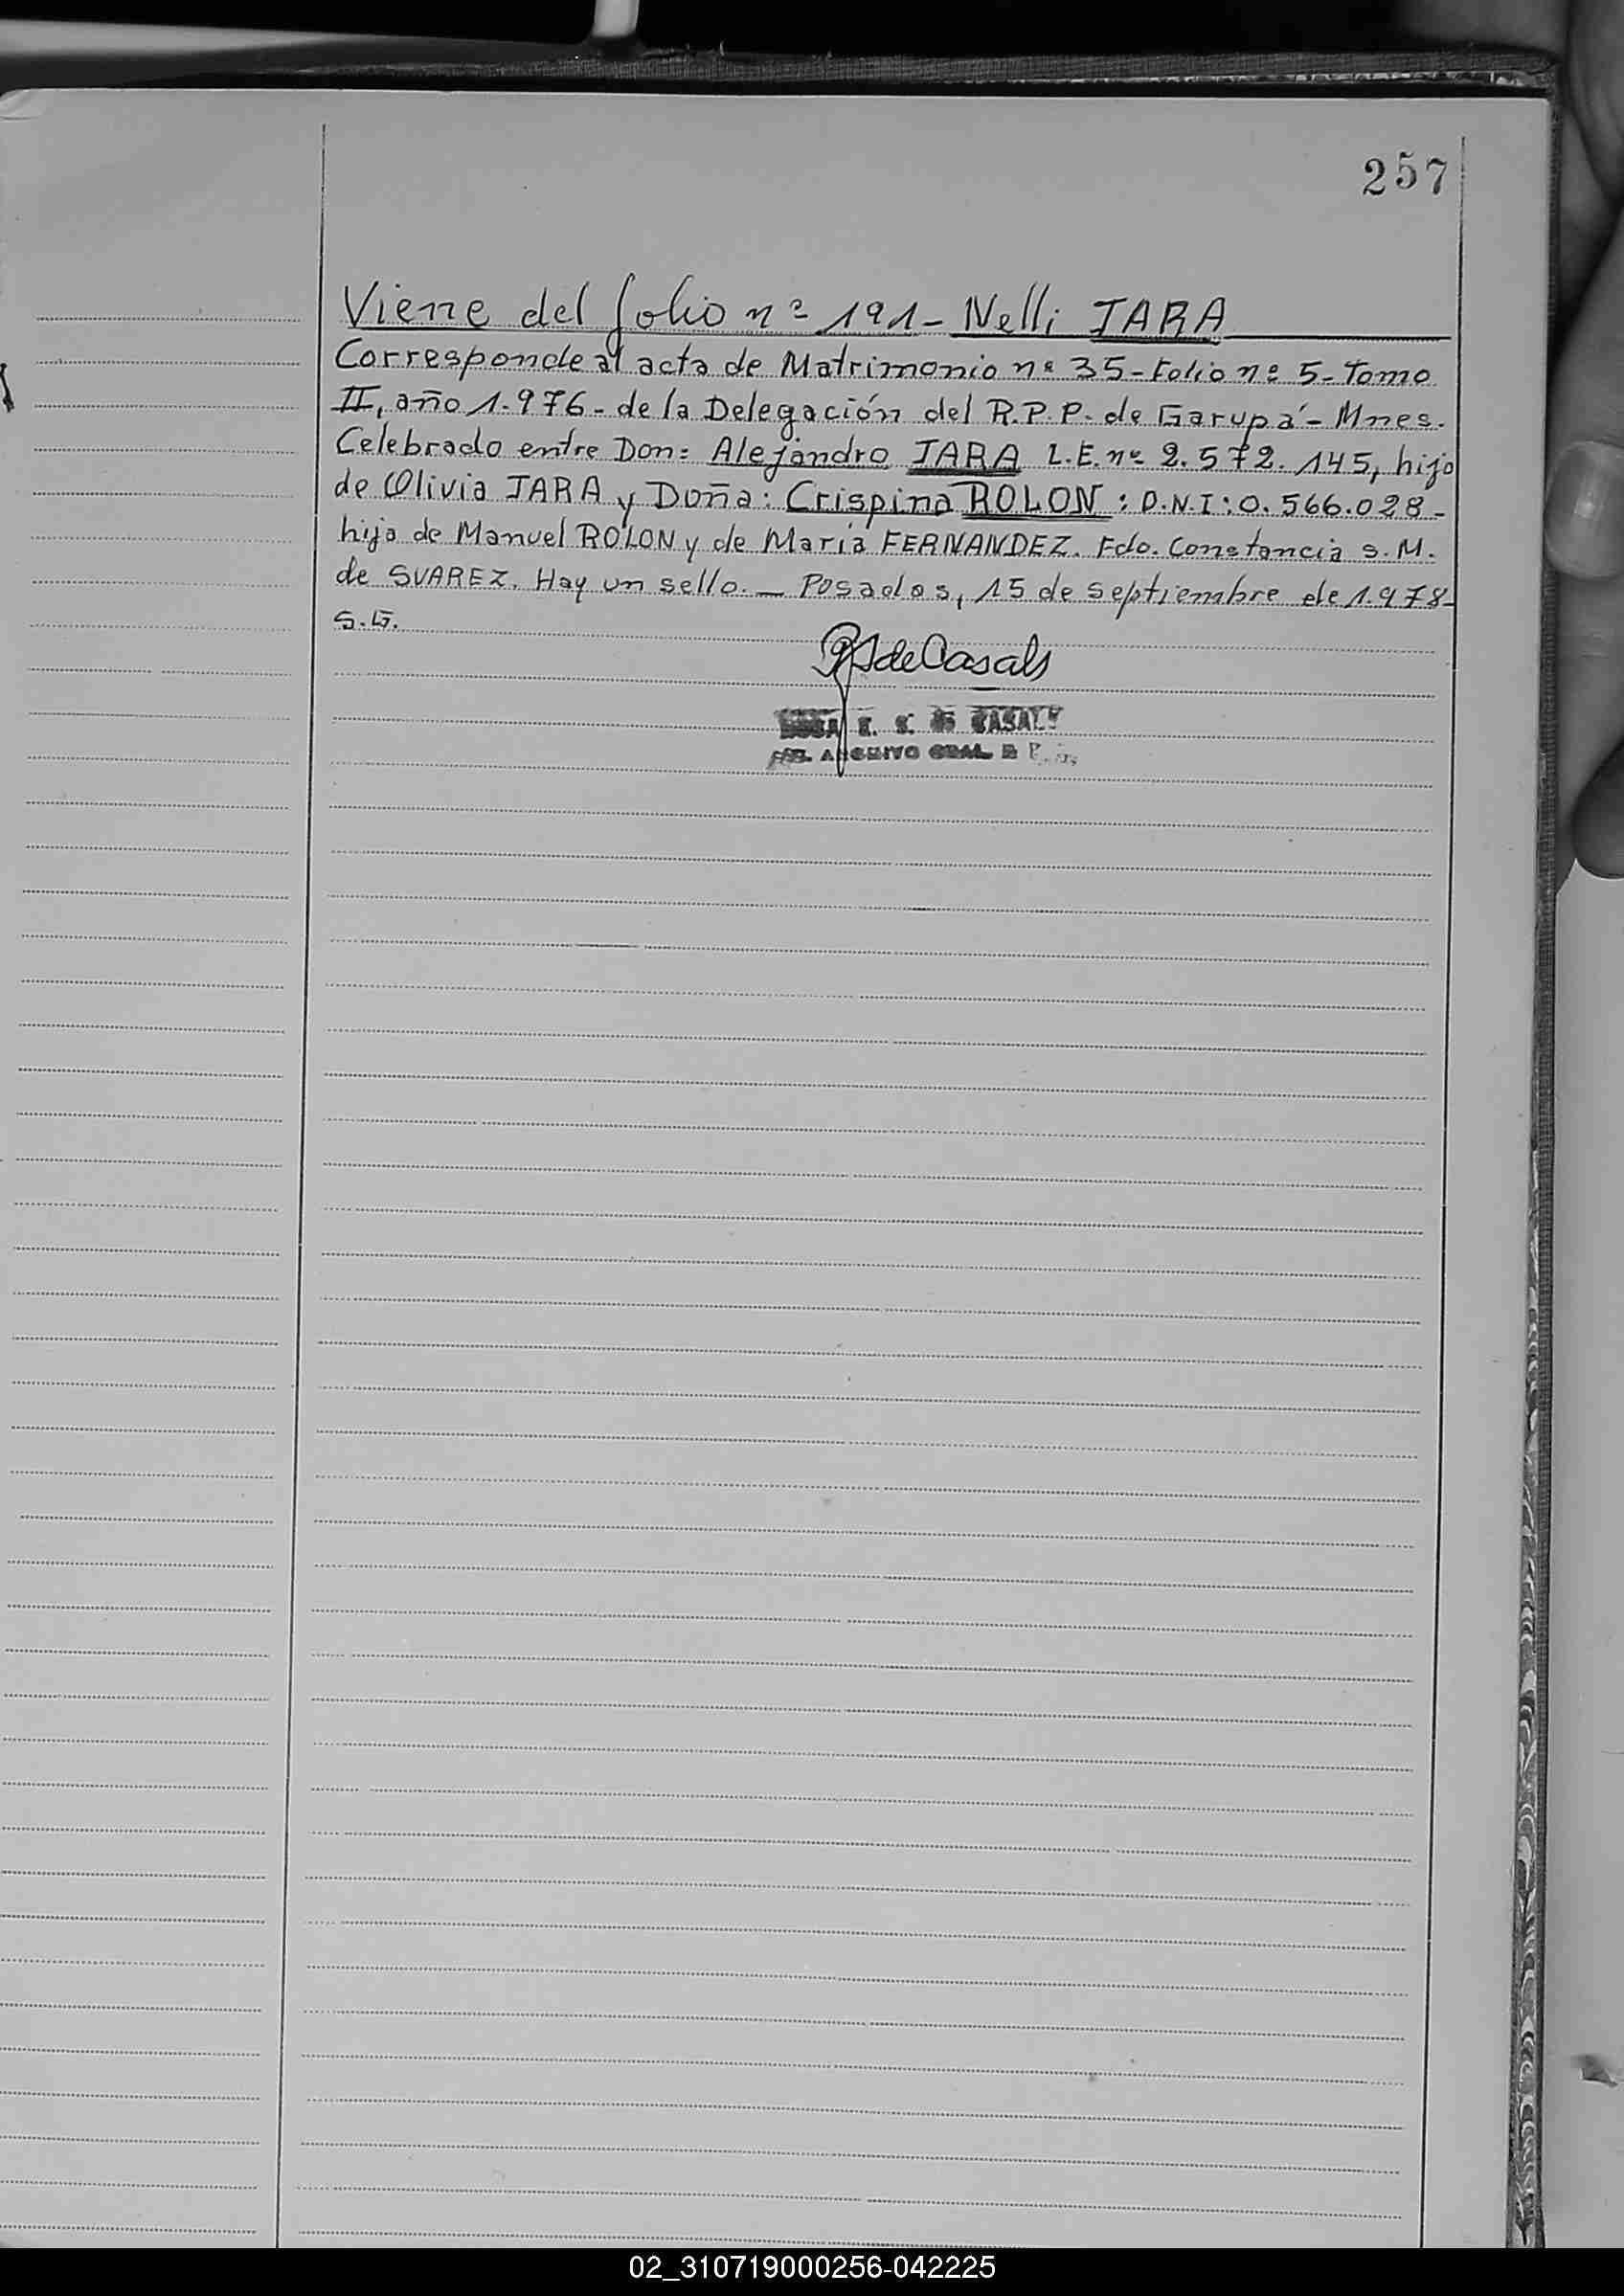 257
Viene del folio nº 191 - Nelli JARA
Corresponde al acta de Matrimonio nº 35 - Folio nº 5 - Tomo
II, año 1.976 - de la Delegación del R.P.P. de Garupá - Mnes.
Celebrado entre Don: Alejandro JARA L.E. nº 2.572.145, hijo
de Olivia JARA y Doña: Crispina ROLON : D.N.I: 0.566.028 -
hija de Manuel ROLON y de Maria FERNANDEZ. Fdo. Constancia S. M.
de SUAREZ. Hay un sello. — Posadas, 15 de septiembre de 1.978 -
S.G.
de Casals
E. S. DE CASALS
ARCHIVO GRAL. DE
02_310719000256-042225